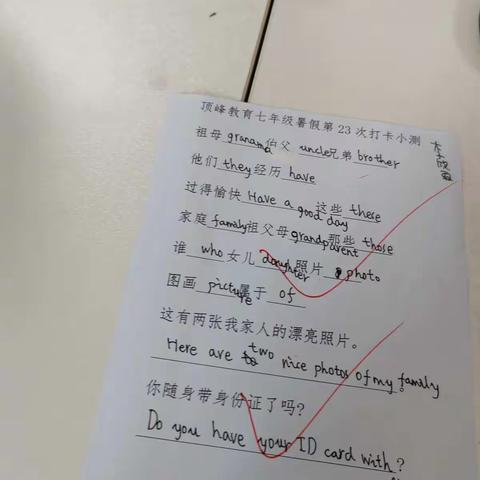 顶峰教育七年级暑假第 23 次打卡小测
祖母 granama 伯父 uncle 兄弟 brother
他们 they 经历 have
过得愉快 Have a good day 这些 these
家庭 family 祖父母 grandparent 那些 those
谁 who 女儿 daughter 照片 photo
图画 picture 属于 of
这有两张我家人的漂亮照片。
Here are two nice photos of my family。
你随身带身份证了吗？
Do you have your ID card with ?